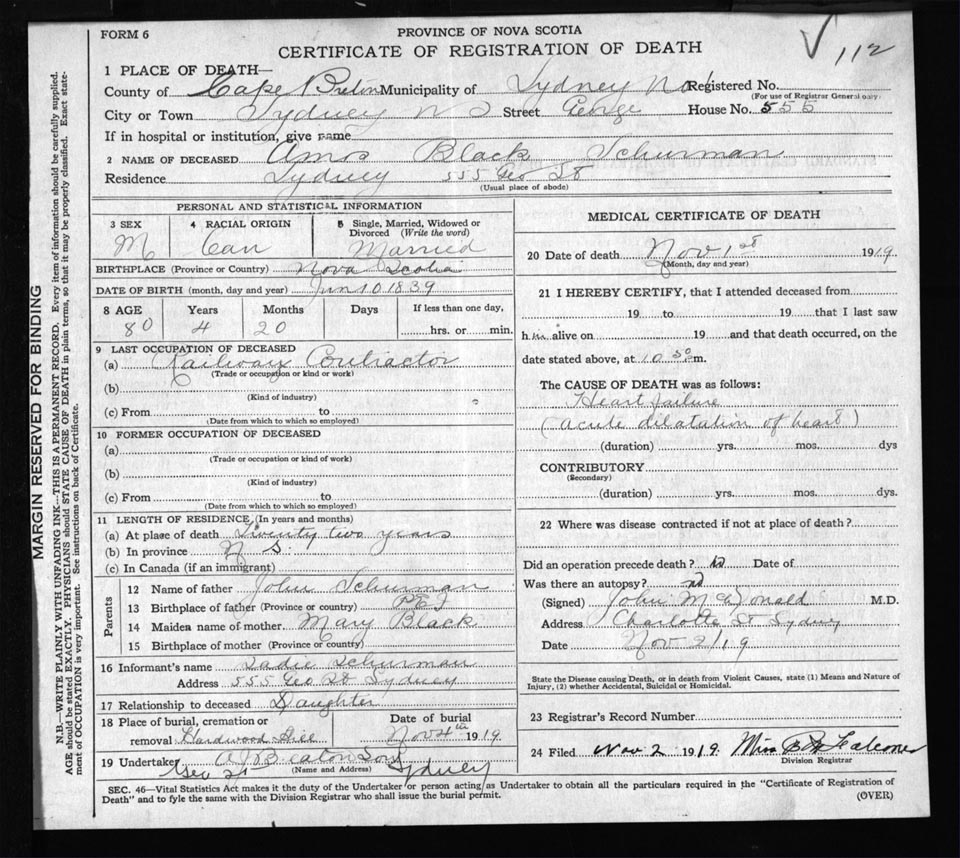 FORM 6
PROVINCE OF NOVA SCOTIA
CERTIFICATE OF REGISTRATION OF DEATH
112
1 PLACE OF DEATH—
County of Cape Breton Municipality of Sydney Registered No.
(For use of Registrar General only)
City or Town Sydney N S Street George House No. 555
If in hospital or institution, give name
2 NAME OF DECEASED Amos Black Schurman
Residence Sydney 555 Geo St
(Usual place of abode)
PERSONAL AND STATISTICAL INFORMATION
3 SEX 4 RACIAL ORIGIN 5 Single, Married, Widowed or Divorced (Write the word)
M Can Married
BIRTHPLACE (Province or Country) Nova Scotia
DATE OF BIRTH (month, day and year) Jun 10 1839
8 AGE Years Months Days If less than one day,
80 4 20 hrs. or min.
9 LAST OCCUPATION OF DECEASED
(a) Railway Contractor
(Trade or occupation or kind or work)
(b)
(Kind of industry)
(c) From to
(Date from which to which so employed)
10 FORMER OCCUPATION OF DECEASED
(a)
(Trade or occupation or kind of work)
(b)
(Kind of industry)
(c) From to
(Date from which to which so employed)
11 LENGTH OF RESIDENCE (In years and months)
(a) At place of death Twenty two years
(b) In province N S.
(c) In Canada (if an immigrant)
Parents
12 Name of father John Schurman
13 Birthplace of father (Province or country) P E I
14 Maiden name of mother Mary Black
15 Birthplace of mother (Province or country)
16 Informant's name Sadie Schurman
Address 555 Geo St Sydney
17 Relationship to deceased Daughter
18 Place of burial, cremation or Date of burial
removal Hardwood Hill Nov 4th 1919.
19 Undertaker A J Beaton Son
(Name and Address)
Geo St Sydney
MEDICAL CERTIFICATE OF DEATH
20 Date of death Nov 1st 1919.
(Month, day and year)
21 I HEREBY CERTIFY, that I attended deceased from
19 to 19 that I last saw
him alive on 19 and that death occurred, on the
date stated above, at 10 30 m.
The CAUSE OF DEATH was as follows:
Heart failure
(acute dilatation of heart)
(duration) yrs. mos. dys
CONTRIBUTORY
(Secondary)
(duration) yrs. mos. dys.
22 Where was disease contracted if not at place of death?
Did an operation precede death? no Date of
Was there an autopsy? no
(Signed) John McDonald M.D.
Address Charlotte St Sydney
Date Nov 2/19
State the Disease causing Death, or in death from Violent Causes, state (1) Means and Nature of
Injury, (2) whether Accidental, Suicidal or Homicidal.
23 Registrar's Record Number
24 Filed Nov 2 1919. Miss B
Division Registrar
SEC. 46—Vital Statistics Act makes it the duty of the Undertaker or person acting as Undertaker to obtain all the particulars required in the "Certificate of Registration of
Death" and to fyle the same with the Division Registrar who shall issue the burial permit.
(OVER)
MARGIN RESERVED FOR BINDING
N.B.—WRITE PLAINLY WITH UNFADING INK—THIS IS A PERMANENT RECORD. Every item of information should be carefully supplied.
AGE should be stated EXACTLY. PHYSICIANS should STATE CAUSE OF DEATH in plain terms, so that it may be properly classified. Exact state-
ment of OCCUPATION is very important. See instructions on back of Certificate.